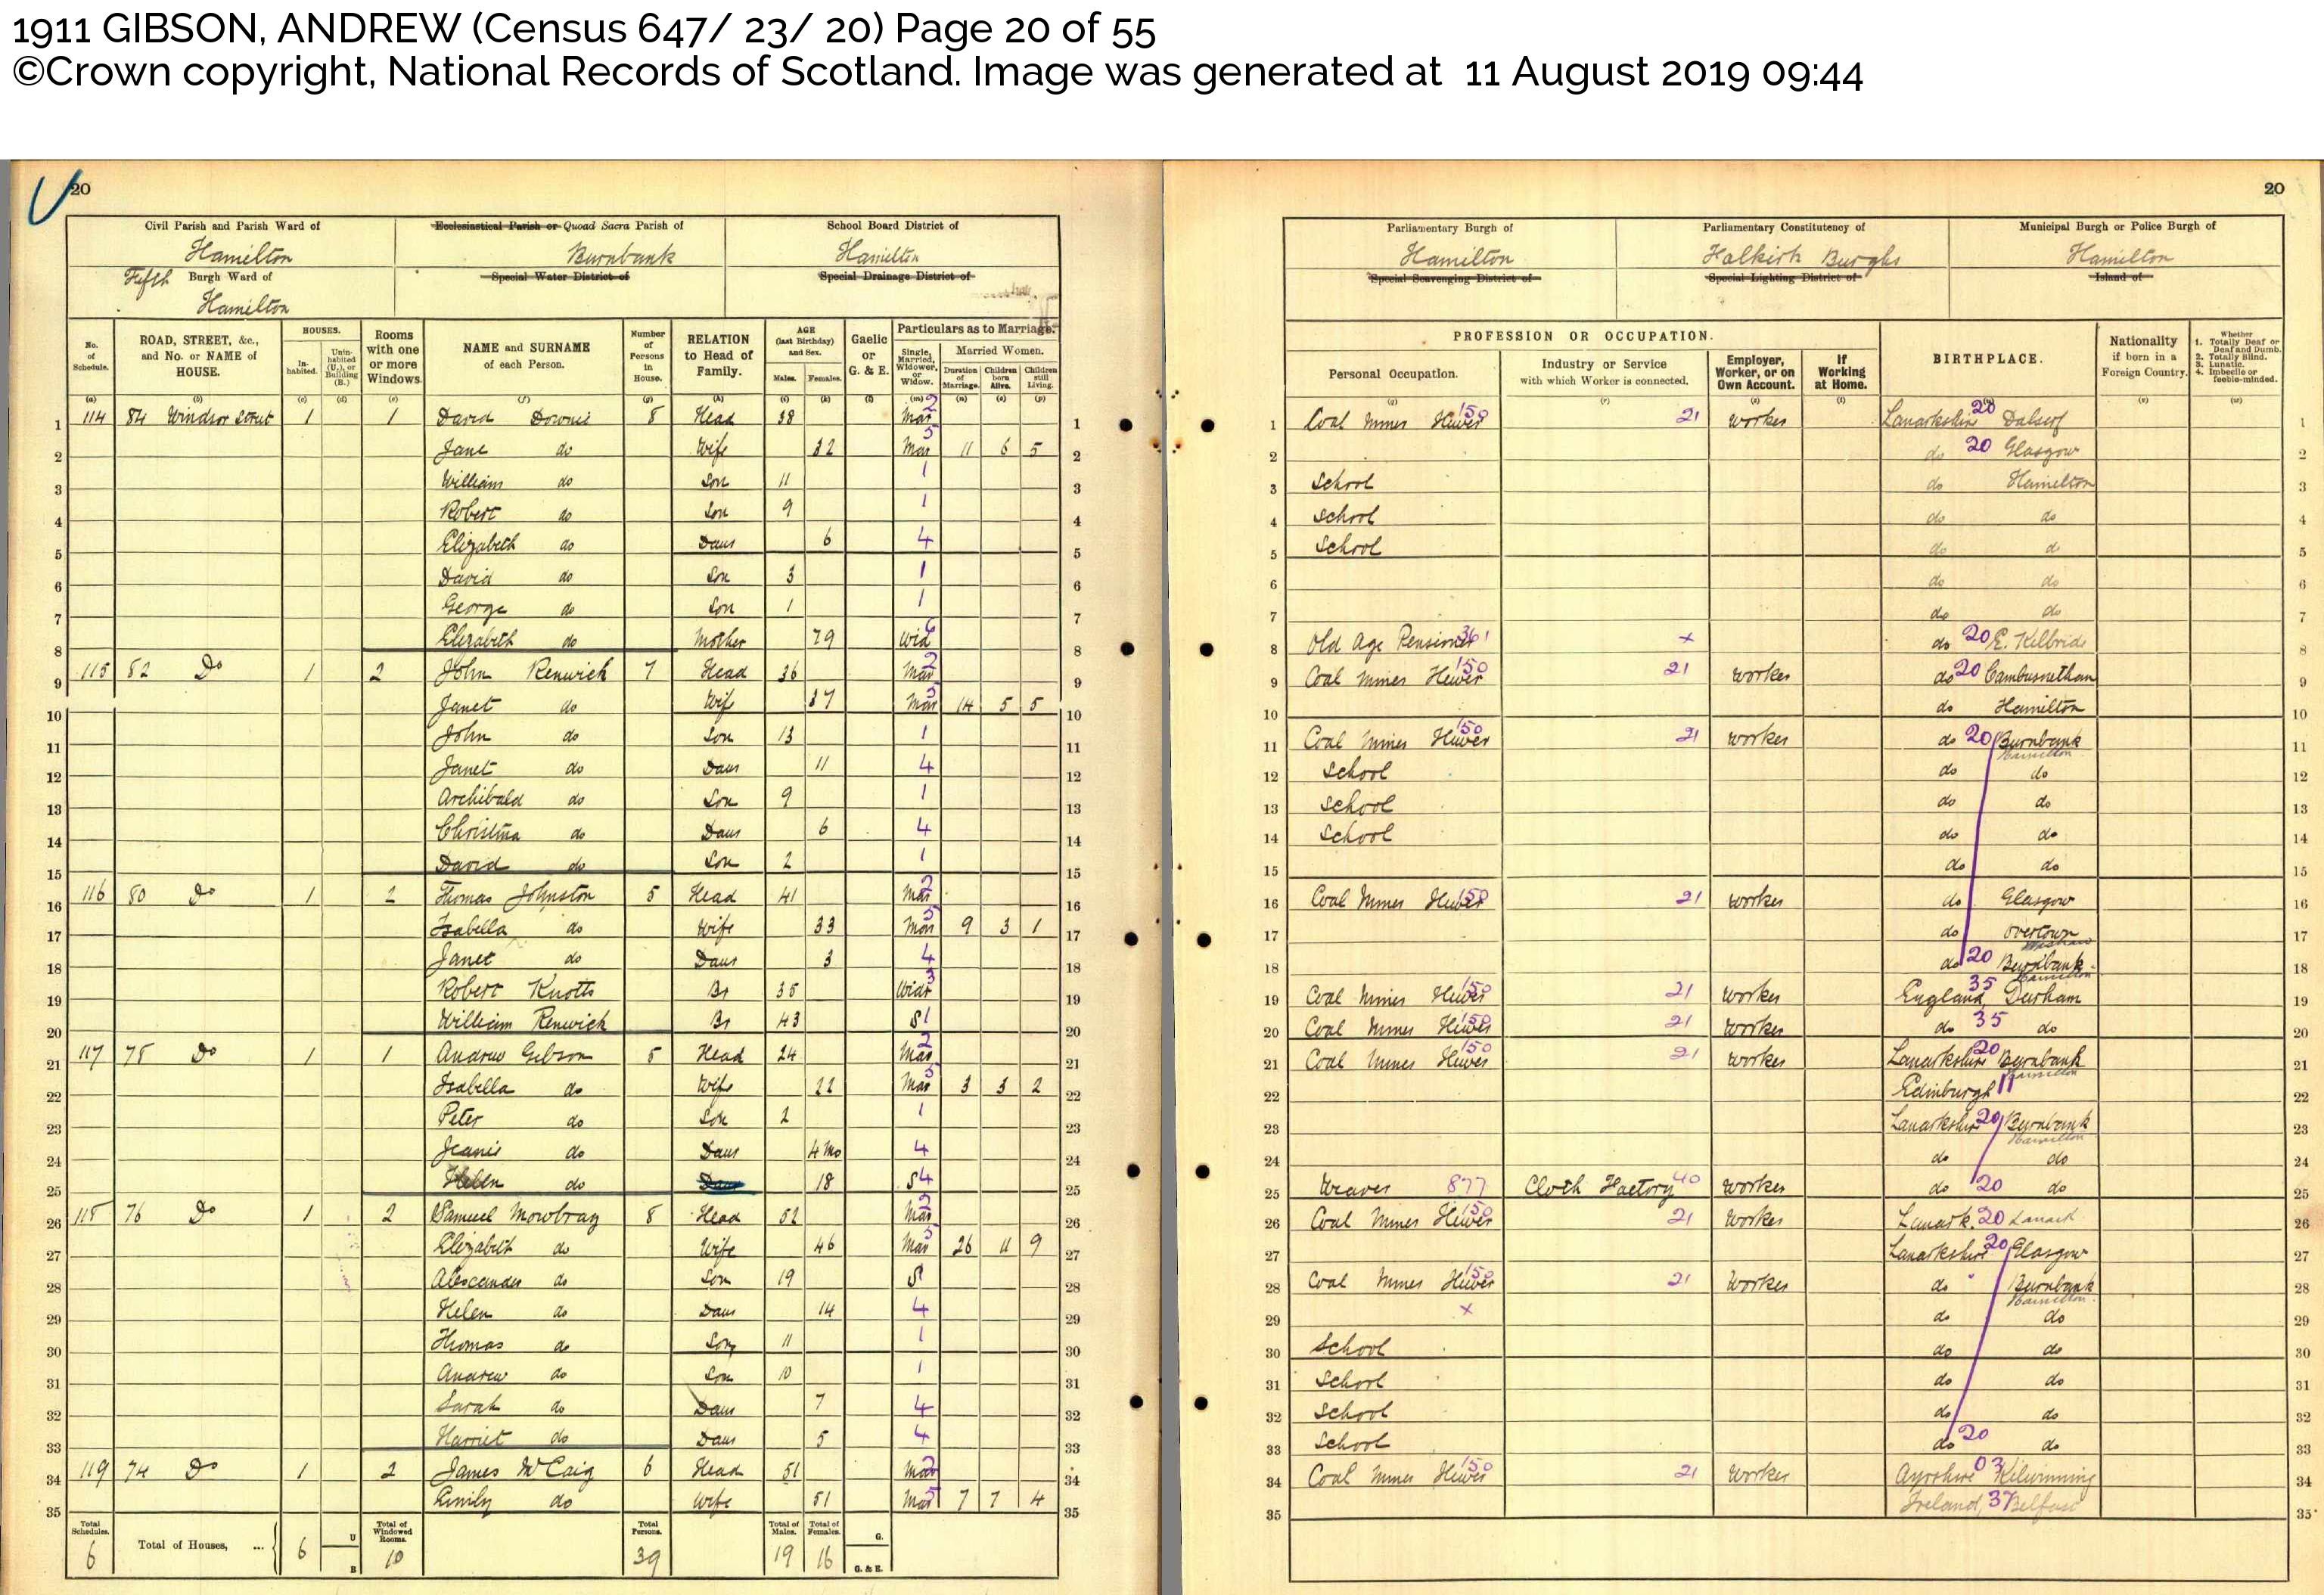 1911 GIBSON, ANDREW (Census 647/ 23/ 20) Page 20 of 55
©Crown copyright, National Records of Scotland. Image was generated at 11 August 2019 09:44
20
20
Civil Parish and Parish Ward of
Hamilton
Fifth Burgh Ward of
Hamilton
Ecclesiastical Parish or Quoad Sacra Parish of
Burnbank
Special Water District of
School Board District of
Hamilton
Special Drainage District of
Parliamentary Burgh of
Hamilton
Special Scavenging District of
Parliamentary Constitutency of
Falkirk Burghs
Special Lighting District of
Municipal Burgh or Police Burgh of
Hamilton
Island of
No. of Schedule.
ROAD, STREET, &c., and No. or NAME of HOUSE.
HOUSES.
In-habited.
Unin-habited (U.), or Building (B.)
Rooms with one or more Windows.
NAME and SURNAME of each Person.
Number of Persons in House.
RELATION to Head of Family.
AGE (last Birthday) and Sex.
Males. Females.
Gaelic or G. & E.
Particulars as to Marriage.
Single, Married, Widower, or Widow.
Married Women.
Duration of Marriage. Children born Alive. Children still Living.
PROFESSION OR OCCUPATION.
Personal Occupation.
Industry or Service with which Worker is connected.
Employer, Worker, or on Own Account.
If Working at Home.
BIRTHPLACE.
Nationality if born in a Foreign Country.
Whether
1. Totally Deaf or Deaf and Dumb.
2. Totally Blind.
3. Lunatic.
4. Imbecile or feeble-minded.
1 114 84 Windsor Street 1 1 David Downie 8 Head 38 Mar 2 Coal Miner Hewer 150 21 Worker Lanarkshire 20 Dalserf
2 Jane do Wife 32 Mar 5 11 6 5 do 20 Glasgow
3 William do Son 11 1 School do Hamilton
4 Robert do Son 9 1 School do do
5 Elizabeth do Daur 6 4 School do d
6 David do Son 3 1 do do
7 George do Son 1 1 do do
8 Elizabeth do Mother 79 Wid 6 Old Age Pensioner 361 x do 20 E. Kilbride
9 115 82 Do 1 2 John Renwick 7 Head 36 Mar 2 Coal Miner Hewer 150 21 Worker do 20 Cambusnethan
10 Janet do Wife 37 Mar 5 14 5 5 do Hamilton
11 John do Son 13 1 Coal Miner Hewer 150 21 Worker do 20 Burnbank Hamilton
12 Janet do Daur 11 4 School do do
13 Archibald do Son 9 1 School do do
14 Christina do Daur 6 4 School do do
15 David do Son 2 1 do do
16 116 80 Do 1 2 Thomas Johnston 5 Head 41 Mar 2 Coal Miner Hewer 150 21 Worker do Glasgow
17 Isabella do Wife 33 Mar 5 9 3 1 do Overtown Wishaw
18 Janet do Daur 3 4 do 20 Burnbank Hamilton
19 Robert Knotts Br 35 Widr 3 Coal Miner Hewer 150 21 Worker England 35 Durham
20 William Renwick Br 43 S 1 Coal Miner Hewer 150 21 Worker do 35 do
21 117 78 Do 1 1 Andrew Gibson 5 Head 24 Mar 2 Coal Miner Hewer 150 21 Worker Lanarkshire 20 Burnbank Hamilton
22 Isabella do Wife 22 Mar 5 3 3 2 Edinburgh 11
23 Peter do Son 2 1 Lanarkshire 20 Burnbank Hamilton
24 Jeanie do Daur 4 Mo 4 do do
25 Helen do Daur 18 S 4 Weaver 877 Cloth Factory 40 Worker do 20 do
26 118 76 Do 1 2 Samuel Mowbray 8 Head 52 Mar 2 Coal Miner Hewer 150 21 Worker Lanark 20 Lanark
27 Elizabeth do Wife 46 Mar 5 26 11 9 Lanarkshire 20 Glasgow
28 Alexander do Son 19 S 1 Coal Miner Hewer 150 21 Worker do Burnbank Hamilton
29 Helen do Daur 14 4 x do do
30 Thomas do Son 11 1 School do do
31 Andrew do Son 10 1 School do do
32 Sarah do Daur 7 4 School do do
33 Harriet do Daur 5 4 School do 20 do
34 119 74 Do 1 2 James McCaig 6 Head 51 Mar 2 Coal Miner Hewer 150 21 Worker Ayrshire 03 Kilwinning
35 Emily do Wife 51 Mar 5 7 7 4 Ireland, 37 Belfast
Total Schedules. 6
Total of Houses, ... 6 U B
Total of Windowed Rooms. 10
Total Persons. 39
Total of Males. 19
Total of Females. 16
G.
G. & E.